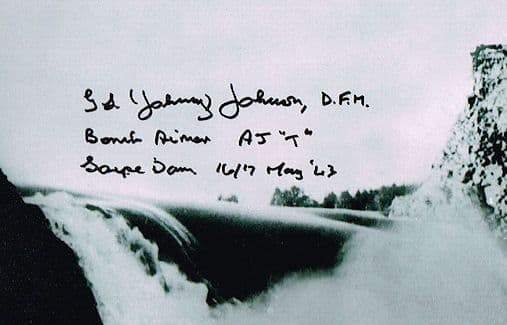 G L (Johnny) Johnson, D.F.M.
Bomb Aimer AJ "T"
Sorpe Dam 16/17 May '43